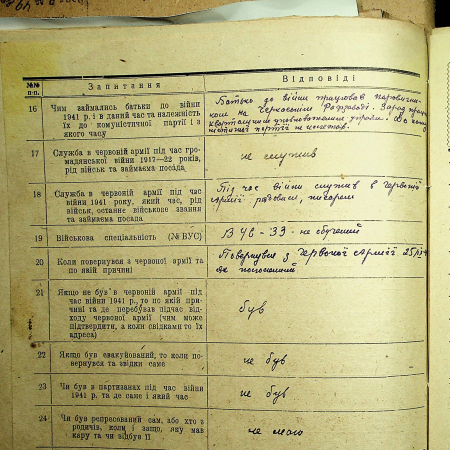 №№ п-п.
Запитання
Відповіді
16
Чим займались батьки до війни
1941 р. і в даний час та належність
їх до комуністичної партії і з
якого часу
Батько до війни працював
17
Служба в червоній армії під час гро-
мадянської війни 1917—22 років,
рід військ та займаєма посада
не служив
18
Служба в червоній армії під час
війни 1941 року, який час, рід
військ, останнє військове звання
та займаєма посада
Під час війни служив в Червоній
Армії рядовим, писарем
19
Військова спеціяльність (№ ВУС)
ВУС-33- не обучений
20
Коли повернувся з червоної армії та
по якій причині
Повернувся з Червоної Армії
21
Якщо не був в червоній армії під
час війни 1941 р., то по якій при-
чині та де перебував підчас від-
ходу червоної армії (чим може
підтвердити, а коли свідками то їх
адреса)
був
22
Якщо був евакуйований, то коли по-
вернувся та звідки саме
не був
23
Чи був в партизанах під час війни
1941 р. та де саме і який час
не був
24
Чи був репресований сам, або хто з
родичів, коли і защо, яку мав
кару та чи відбув її
не маю